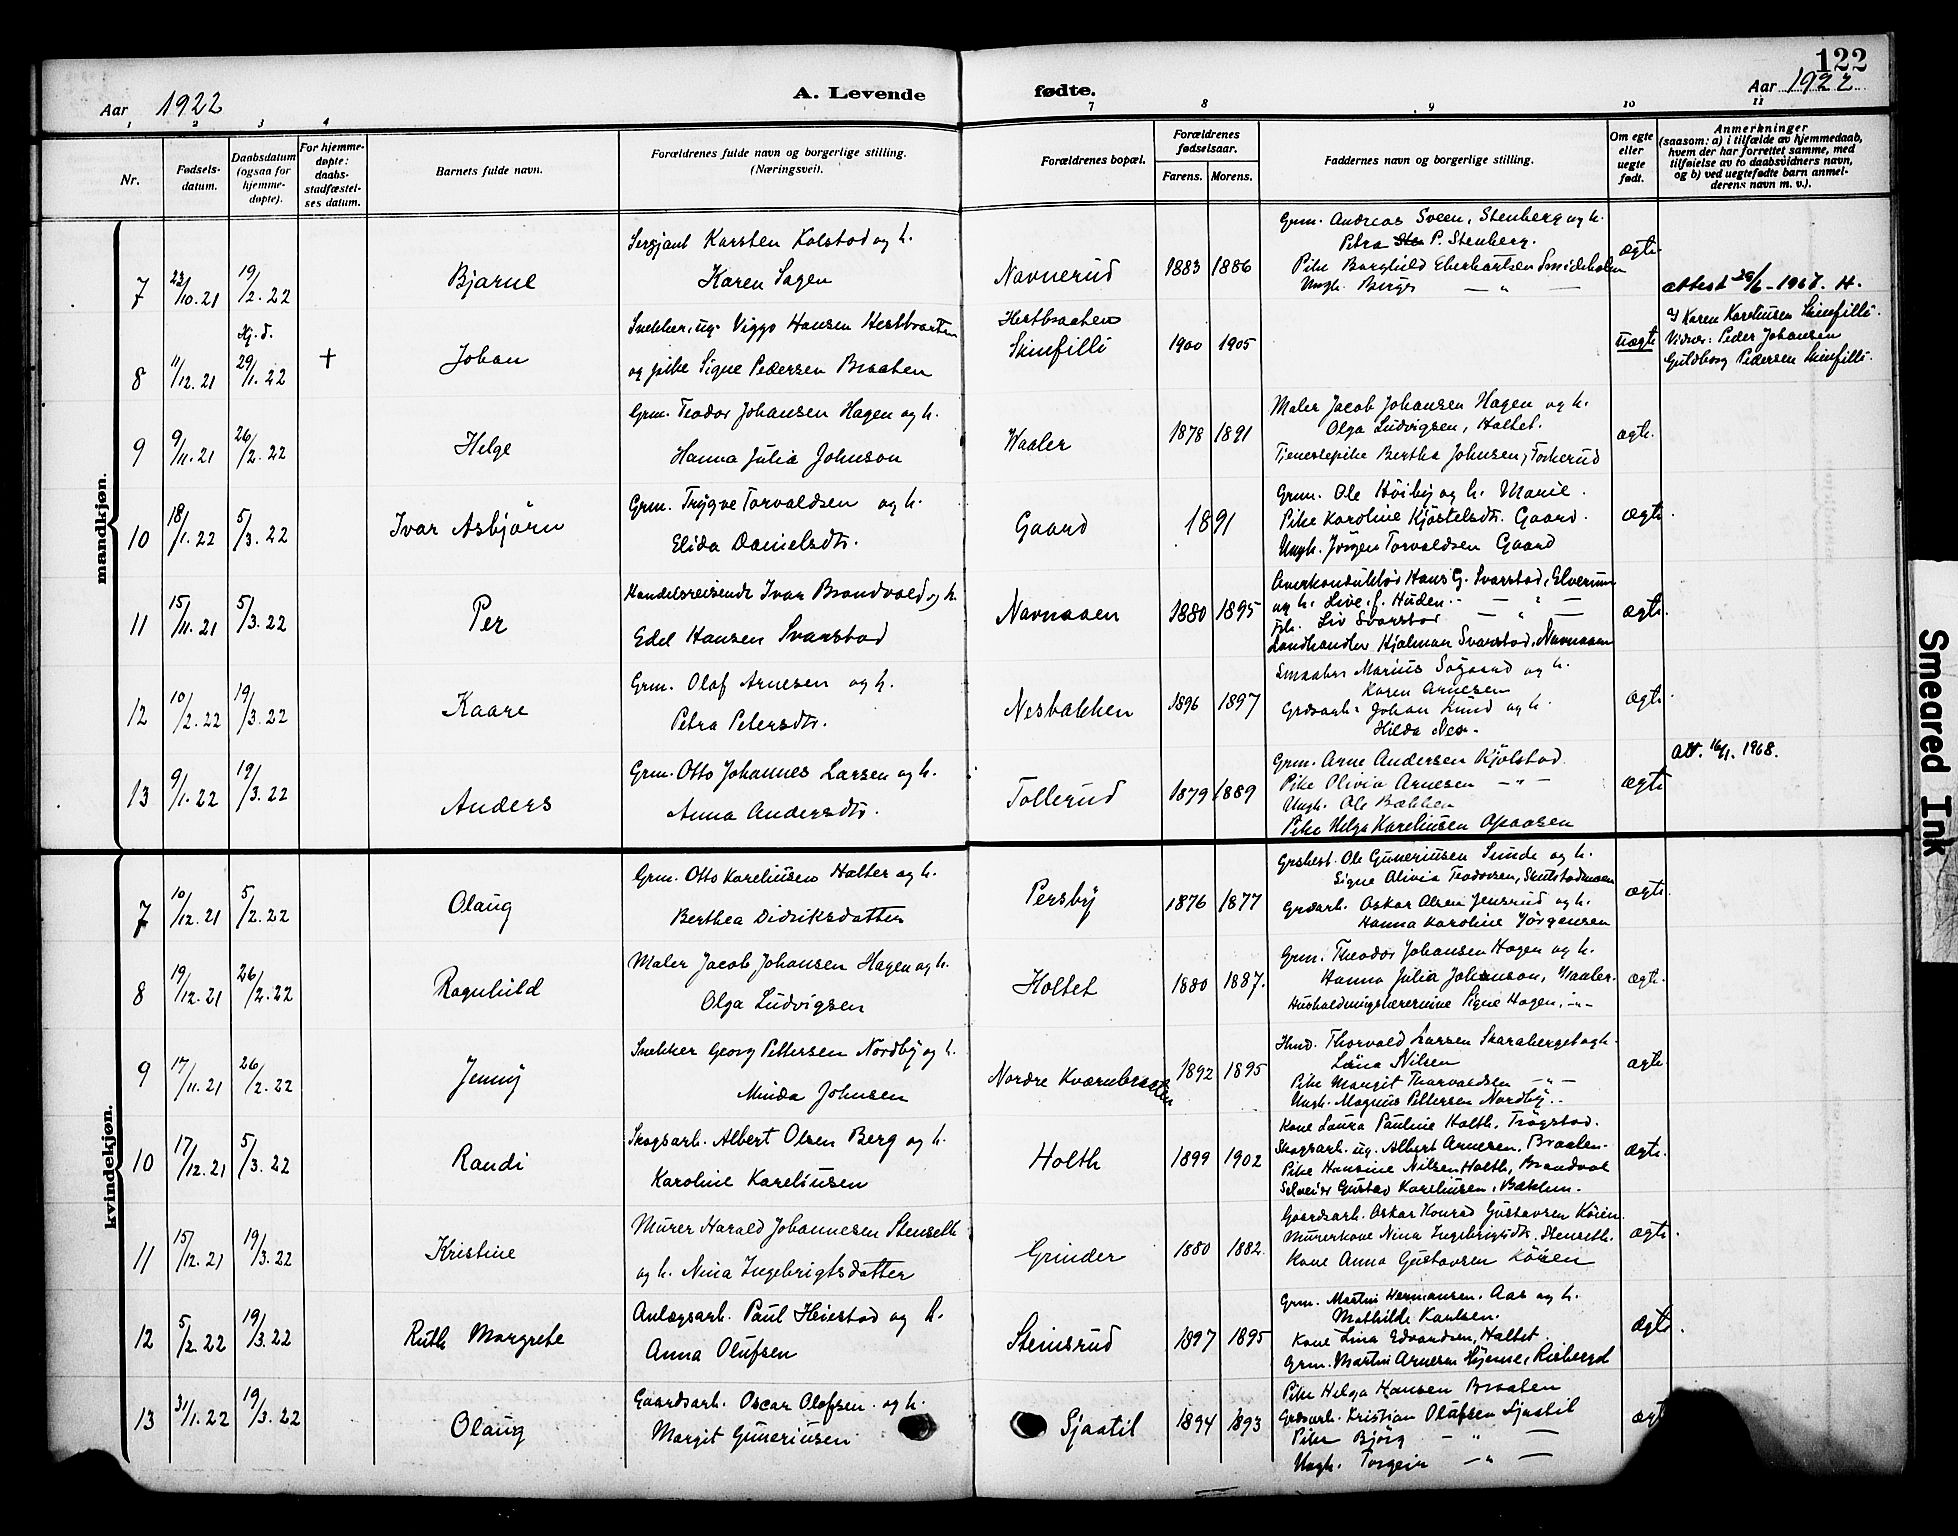 122
Aar 1922
A. Levende fødte.
Aar 1922
1 2 3 4 7 8 9 10 11
Nr.
Fødsels-
datum.
Daabsdatum
(ogsaa for
hjemme-
døpte).
For hjemme-
døpte:
daabs-
stadfæstel-
ses datum.
Barnets fulde navn.
Forældrenes fulde navn og borgerlige stilling.
(Næringsvei).
Forældrenes bopæl.
Forældrenes
fødselsaar.
Farens. Morens.
Faddernes navn og borgerlige stilling.
Om egte
eller
uegte
født.
Anmerkninger
(saasom: a) i tilfælde av hjemmedaab,
hvem der har forrettet samme, med
tilføielse av to daabsvidners navn,
og b) ved uegtefødte barn anmel-
derens navn m. v.).
mandkjøn.
7
22/10.21
19/2.22
Bjarne
Sersjant Karsten Kolstad og h.
Karen Sagen
Navnerud
1883 1886
Grm. Andreas Sveen, Stenberg og h.
Petra P. Stenberg.
Pike Borghild Eberhartsen Smideholen
Ungk. Berger — " —
ægte
attest 29/6-1967. H.
8
11/12.21
Hj.d.
29/1.22
+
Johan
Snekker, ug. Viggo Hansen Hestbraaten
og pike Signe Pedersen Braaten
Hestbraaten
Skinfilli
1900 1905
uægte
Karen Kareliusen Skinfilli.
Vidner: Peder Johansen
Guldborg Pedersen Skinfilli.
9
9/11.21
26/2.22
Helge
Grm. Teodor Johansen Hagen og h.
Hanna Julia Johnson
Waaler
1878 1891
Maler Jacob Johansen Hagen og h.
Olga Ludvigsen, Holtet.
Tjenestepike Bertha Johnsen, Foskerud
ægte.
10
18/1.22
5/3.22
Ivar Asbjörn
Grm. Trygve Torvaldsen og h.
Elida Danielsdtr.
Gaard
1891
Grm. Ole Höiby og h. Marie.
Pike Karoline Kjöstelsdtr. Gaard.
Ungk. Jörgen Torvaldsen Gaard
ægte
11
15/11.21
5/3.22
Per
Handelsreisende Ivar Brandvold og h.
Edel Hansen Svarstad
Navnaaen
1880 1895
Overkonduktör Hans G. Svarstad, Elverum
og h. Live, f. Huden. — " —
Frk. Liv Svarstad — " —
Landhandler Hjalmar Svarstad, Navnaaen
ægte.
12
10/2.22
19/3.22
Kaare
Grm. Olaf Arnesen og h.
Petra Petersdtr.
Nesbakken
1896 1897
Smaabr. Marius Sögaard og h.
Karen Arnesen
Grdsarb. Johan Lund og h.
Hilda Nes.
ægte
13
9/1.22
19/3.22
Anders
Grm. Otto Johannes Larsen og h.
Anna Andersdtr.
Tollerud
1879 1889
Grm. Arne Andersen Kjölstad.
Pike Olivia Arnesen — " —
Ungk. Ole Bakken
Pike Helga Kareliusen Opaasen
ægte
att. 16/1. 1968.
kvindekjøn.
7
10/12.21
5/2.22
Olaug
Grm. Otto Kareliusen Halter og h.
Berthea Didriksdatter
Persby
1876 1877
Grdbest. Ole Guneriusen Sunde og h.
Signe Olivia Teodorsen, Skulstadmoen
Grdsarb. Oskar Olsen Jensrud og h.
Hanna Karoline Jörgensen
ægte
8
19/12.21
26/2.22
Ragnhild
Maler Jacob Johansen Hagen og h.
Olga Ludvigsen
Holtet
1880 1887.
Grm. Theodor Johansen Hagen og h.
Hanna Julia Johnson, Waaler.
Husholdningslærerinne Signe Hagen, — " —
ægte.
9
17/11.21
26/2.22
Jenny
Snekker Georg Pettersen Nordby og h.
Minda Johnsen
Nordre Kværnbraaten
1892 1895
Hmd. Thorvald Larsen Skaraberget og h.
Lina Nilsen
Pike Margit Thorvaldsen — " —
Ungk. Magnus Pettersen Nordby..
ægte
10
17/12.21
5/3.22
Randi
Skogsarb. Albert Olsen Berg og h.
Karoline Kareliusen
Holth
1899 1902
Kone Laura Pauline Holth, Trøgstad.
Skogsarb. ug. Albert Arnesen, Braaten.
Pike Hansine Nilsen Holth, Brandval
Sveiser Gustav Kareliusen, Bakken.
ægte.
11
15/12.21
19/3.22
Kristine
Murer Harald Johannesen Stenseth
og h. Nina Ingebrigtsdatter
Grinder
1880 1882
Gaardsarb. Oskar Konrad Gustavsen Köien.
Murerkone Nina Ingebrigtsdtr. Stenseth.
Kone Anna Gustavsen Köien
ægte
12
5/2.22
19/3.22
Ruth Margrete
Anlægsarb. Paul Heiestad og h.
Anna Olufsen
Steinsrud
1897 1895
Grm. Martin Hermansen, Aas og h.
Mathilde Karlsen.
Kone Lina Edvardsen, Holtet.
Grm. Martin Arnesen Hjerne, Risberget
ægte
13
31/1.22
19/3.22
Olaug
Gaardsarb. Oscar Olofsen og h.
Margit Guneriusen
Sjaatil
1894 1893
Pike Helga Hansen Braaten
Grdsarb. Kristian Olufsen Sjaatil
Pike Björg — " —
Ungk. Torgein — " —
ægt
Smeared Ink